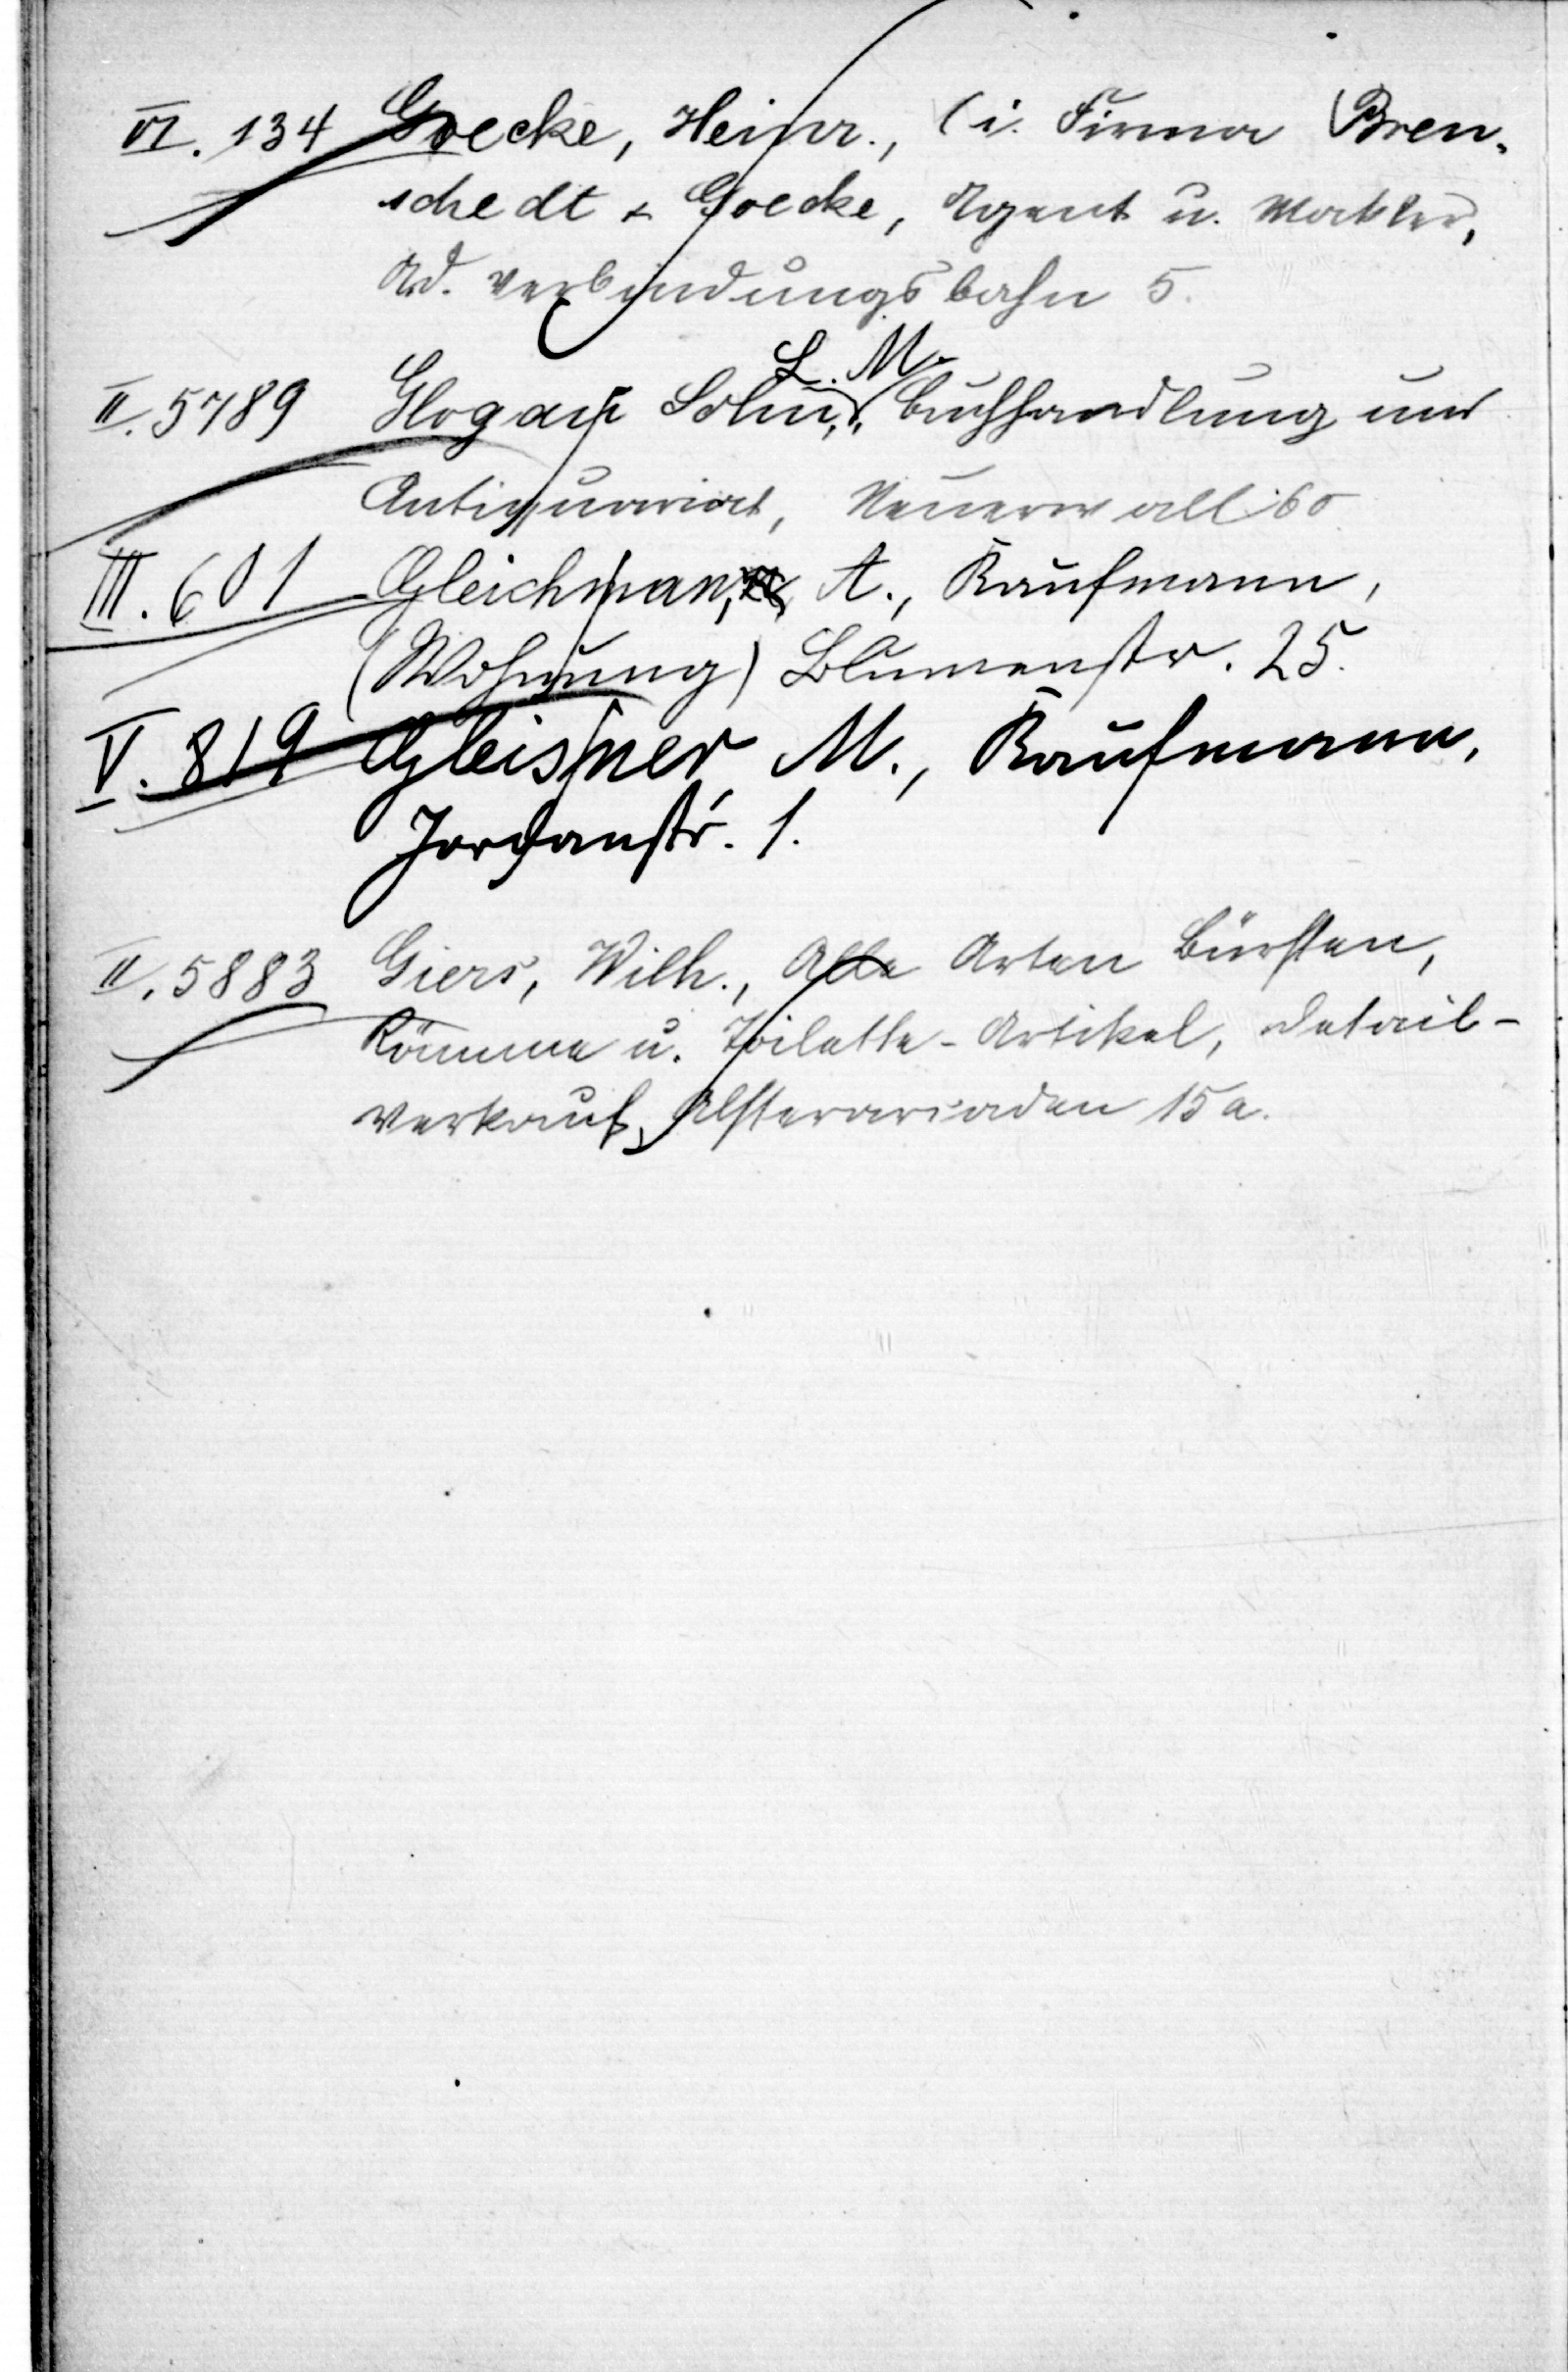 VI. 134 Goecke, Heinr., (i. Firma Bren-
schedt & Goecke, Agent u. Makler,
A.d. Verbindungsbahn 5.
L. M.
II. 5789 Glogau Sohn, Buchhandlung und
Antiquariat, Neuerwall 60
III. 601 Gleichman, A., Kaufmann,
(Wohnung) Blumenstr. 25.
V. 819 Gleisner M., Kaufmann,
Jordanstr. 1.
II. 5883 Giers, Wilh., Alle Arten Bürsten,
Kämme u. Toilette-Artikel, Detail-
verkauf, Alsterarcaden 15a.